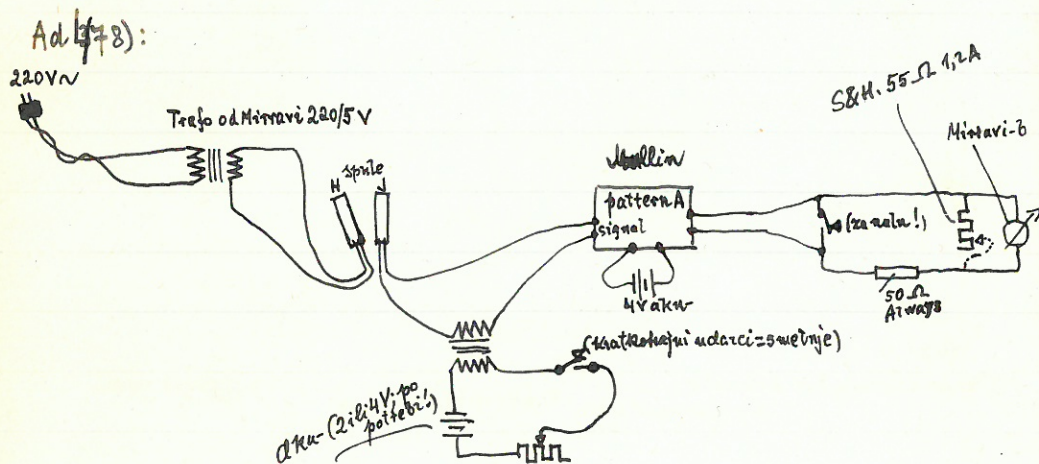 Ad (378):
220V~
Trafo od Mirravi 220/5 V
H spule J
Mullin
pattern A
signal
4V aku
S&H. 55Ω 1,2A
Mirravi-6
(za nuln!)
50Ω
Always
(kratkotrajni udarci=smetnje)
aku-(2ili4V, po
potrebi!)